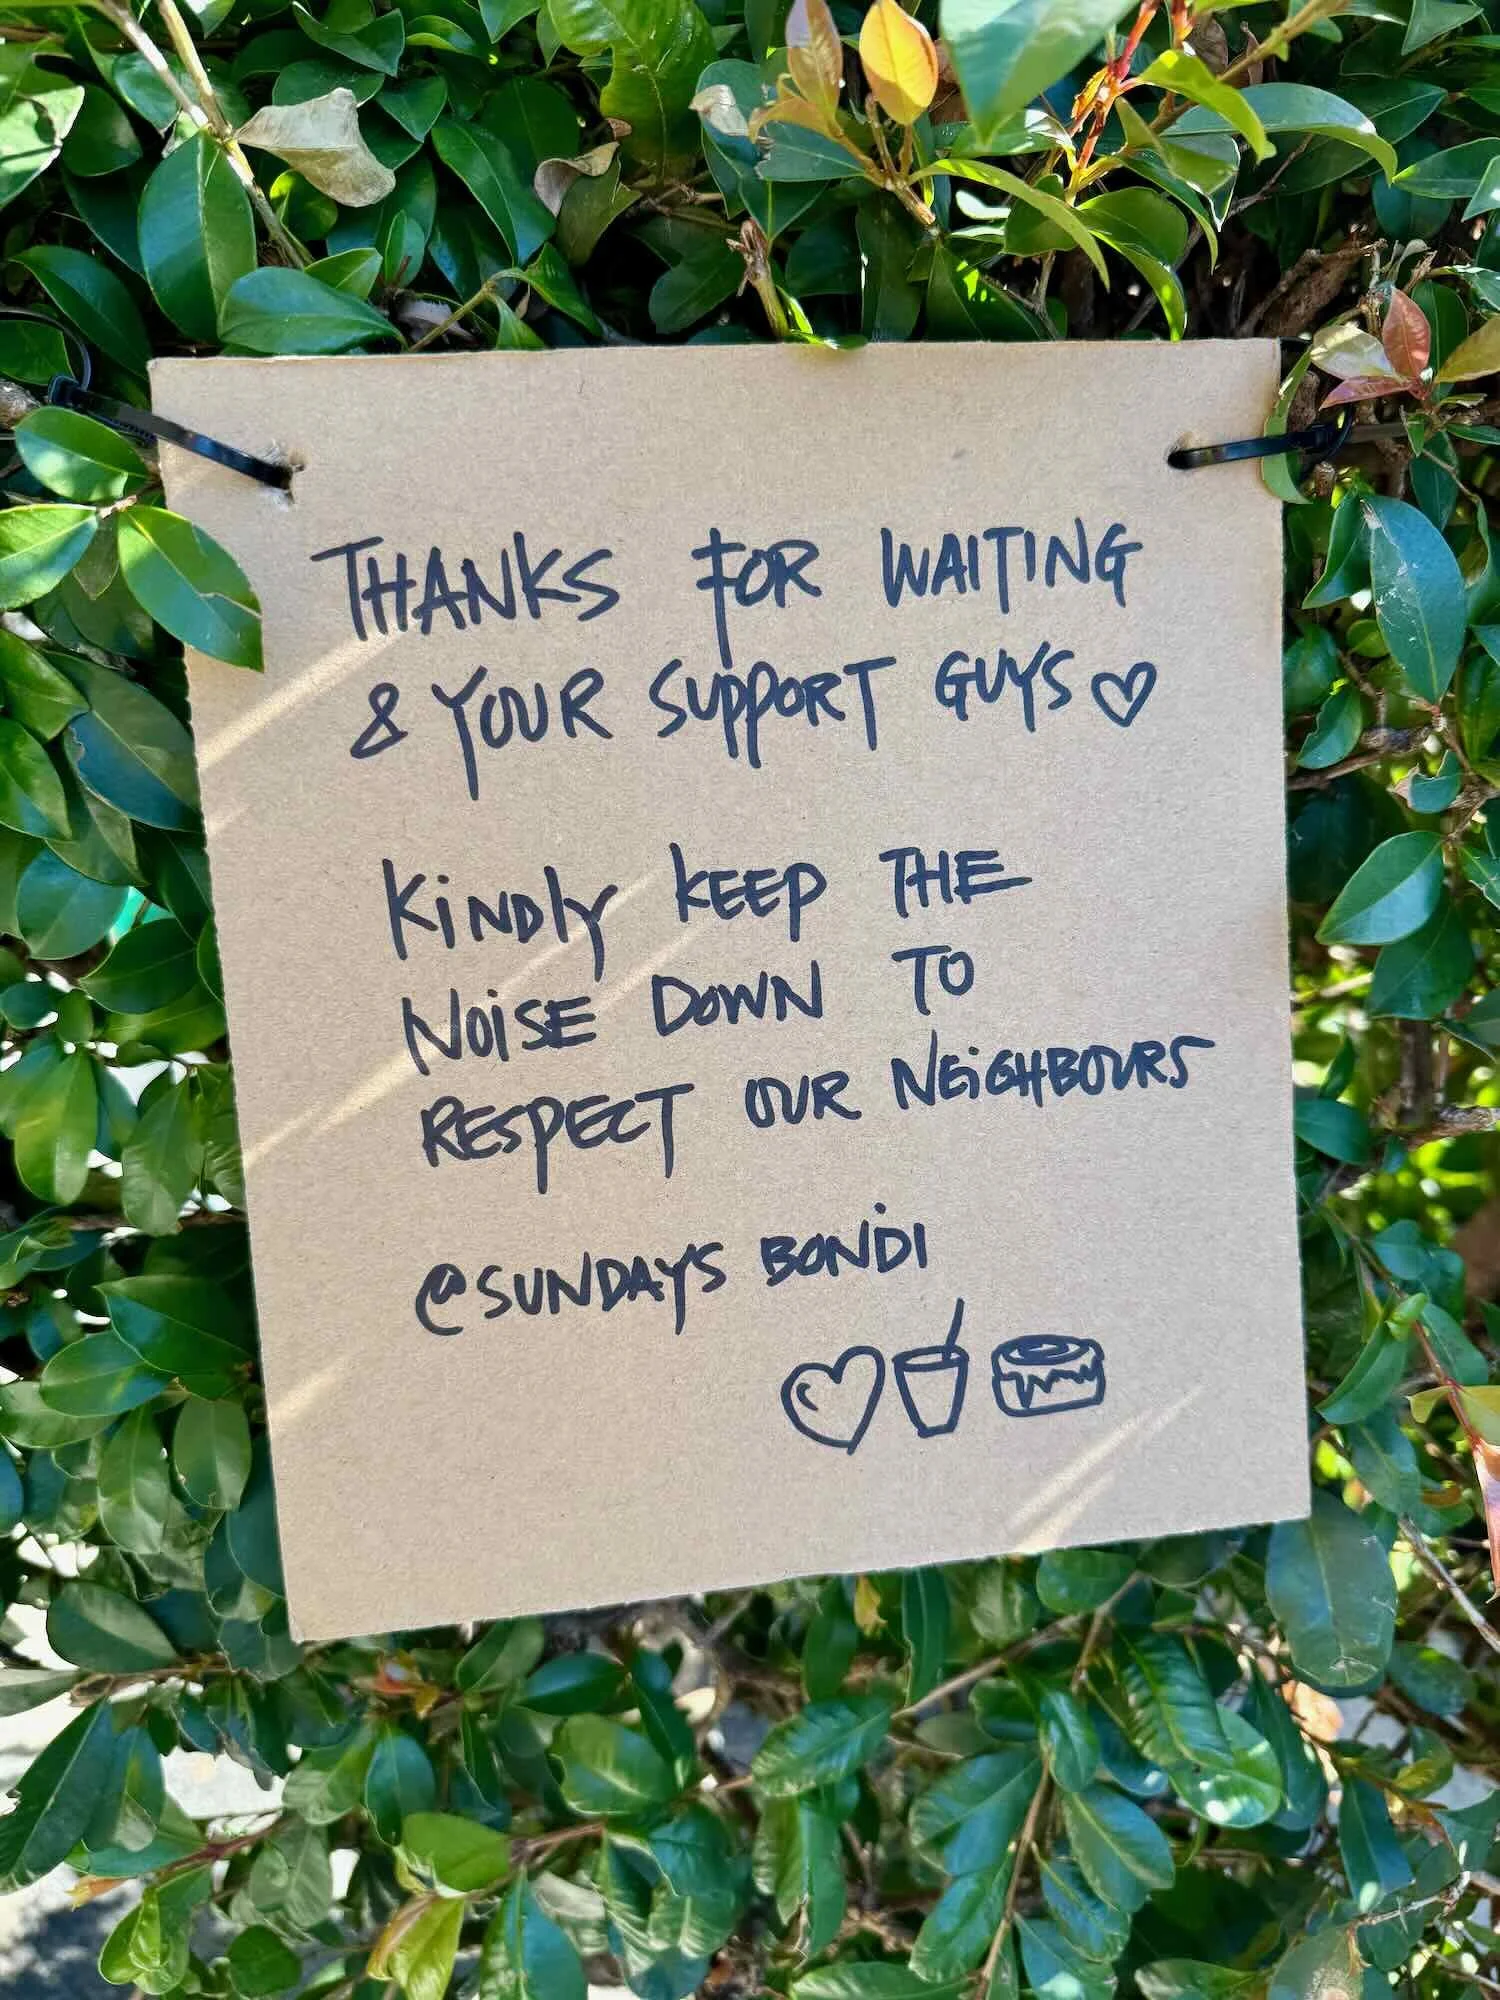 THANKS FOR WAITING
& YOUR SUPPORT GUYS ♡
KiNDly KEEP THE
NOiSE DOWN TO
RESPECT OUR NEiGHBOURS
@SUNDAYS BONDI